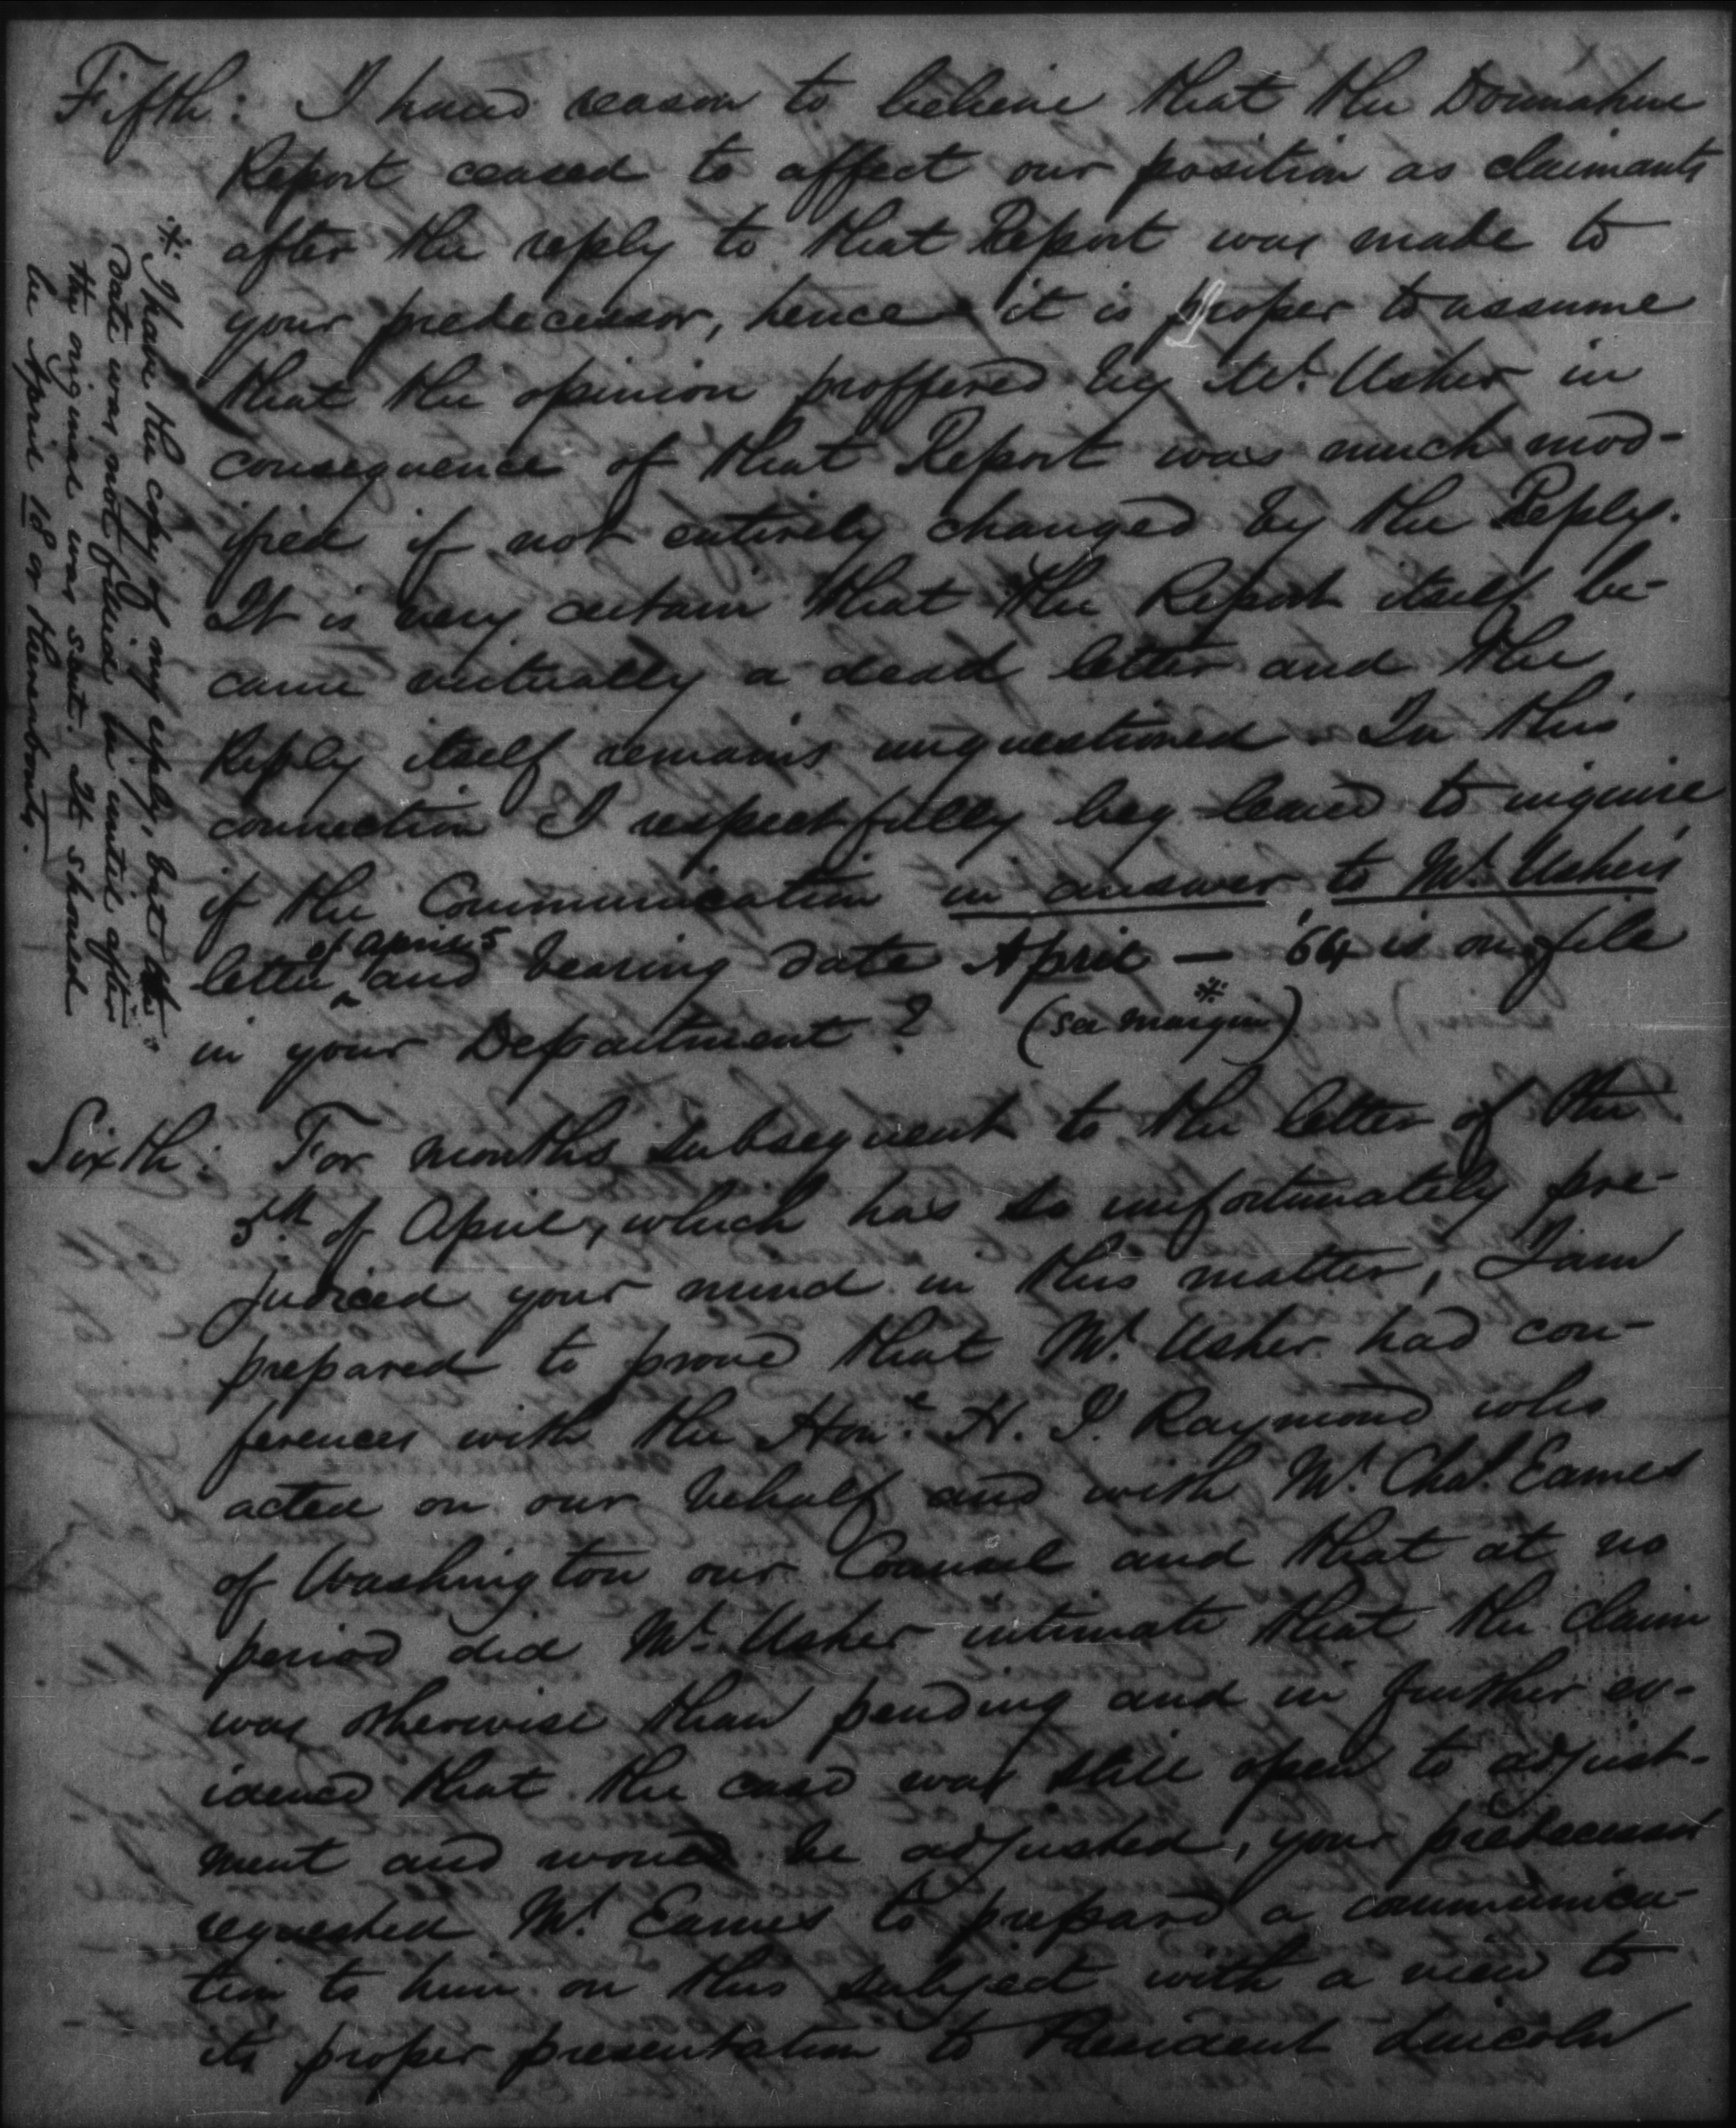 Fifth: I have reason to believe that the Donnahue
Report ceased to affect our position as claimants
after the reply to that Report was made to
your predecessor, hence it is proper to assume
that the opinion proffered by Mr. Usher in
consequence of that Report was much mod-
ified if not entirely changed by the Reply.
It is very certain that the Report itself be-
came virtually a dead letter and the
Reply itself remains unquestioned. In this
connection I respectfully beg leave to inquire
if the Communication in answer to Mr. Usher's
of April 5
letter ^ and bearing date April — '64 is on file
in your Department? (see margin) *
* I have the copy of my reply, but the
date was not filled in until after
the original was sent. It should
be April 18 or thereabouts.
Sixth: For months subsequent to the letter of the
5th of April, which has so unfortunately pre-
judiced your mind in this matter, I am
prepared to prove that Mr. Usher had con-
ferences with the Hone. H. J. Raymond who
acted on our behalf and with Mr. Chas. Eames
of Washington our Counsel and that at no
period did Mr. Usher intimate that the claim
was otherwise than pending and in further ev-
idence that the case was still open to adjust-
ment and would be adjusted, your predecessor
requested Mr. Eames to prepare a communica-
tion to him on this subject with a view to
its proper presentation to President Lincoln